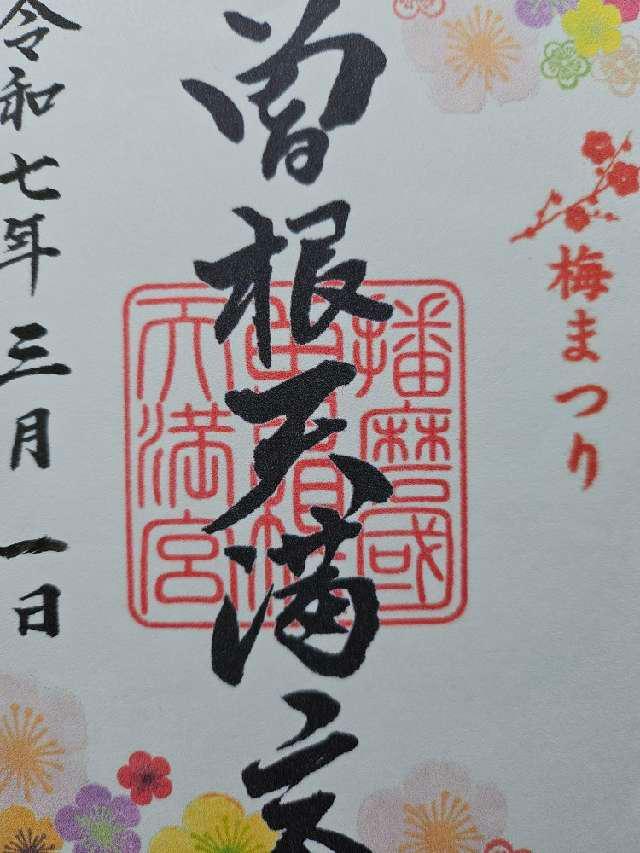 梅まつり
曽根天満宮
播磨國
曽根
天満宮
令和七年三月一日